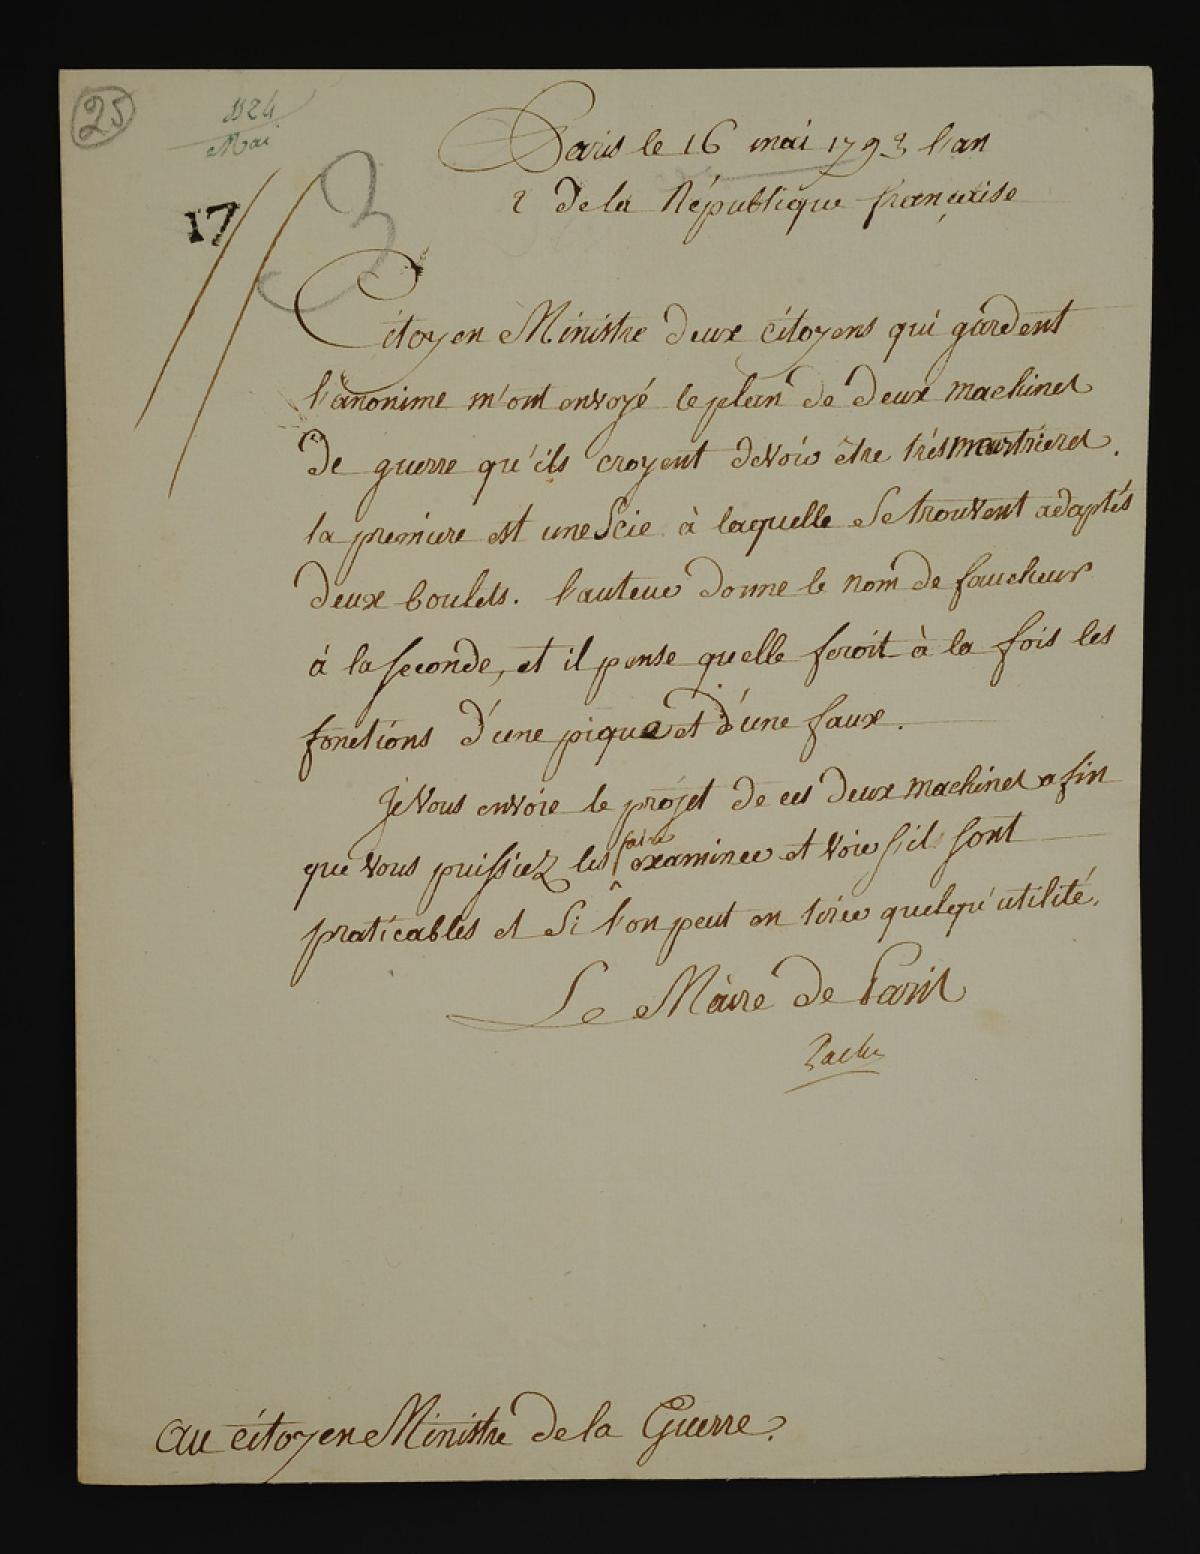 25
1124
Mai
17
3
Paris le 16 mai 1793 l'an
2 de la République françaisise
Citoyen Ministre deux citoyens qui gardent
l'anonime m'ont envoyé le plan de deux machines
de guerre qu'ils croyent devoir être très meurtrieres.
la premiere est une Scie à laquelle se trouvent adaptés
deux boulets. l'auteur donne le nom de faucheur
à la seconde, et il pense quelle feroit à la fois les
fonctions d'une pique et d'une faux.
Je vous envoie le projet de ces deux machines afin
que vous puissiez les faire examiner et voir s'ils sont
praticables et si l'on peut en tirer quelqu'utilité.
Le Maire de Paris
Pache
au citoyen Ministre de la Guerre.